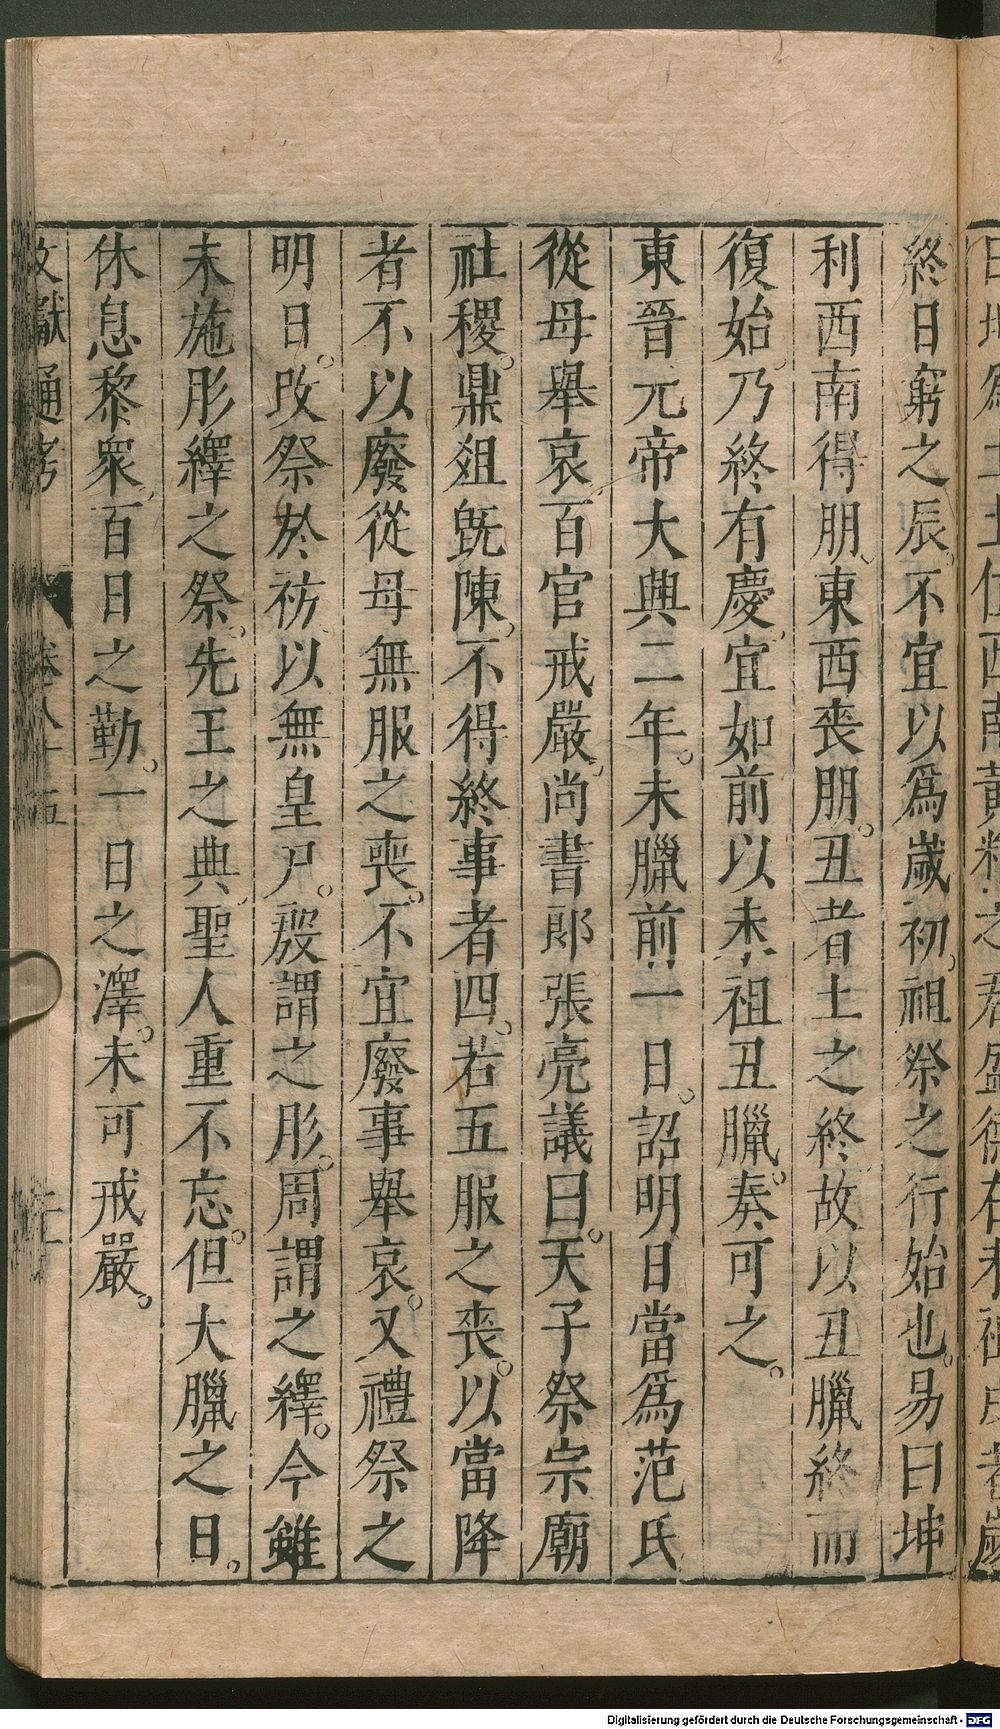 終日窮之辰。不宜以爲歲初。祖祭之行始也。易曰坤
利西南得朋。東西喪朋。丑者土之終故以丑臘終而
復始。乃終有慶。宜如前以未祖丑臘。奏可之。
東晉元帝大興二年。未臘前一日。詔明日當爲范氏
從母舉哀百官戒嚴。尚書郎張亮議曰。天子祭宗廟
社稷。鼎俎旣陳。不得終事者四。若五服之喪。以當降
者不以廢從母無服之喪。不宜廢事舉哀。又禮祭之
明日。改祭於祊以無皇尸。殷謂之肜。周謂之繹。今雖
未施肜繹之祭。先王之典聖人重不忘。但大臘之日。
休息黎衆百日之勤。一日之澤。未可戒嚴。
文獻通考 卷八十五
Digitalisierung gefördert durch die Deutsche Forschungsgemeinschaft - DFG